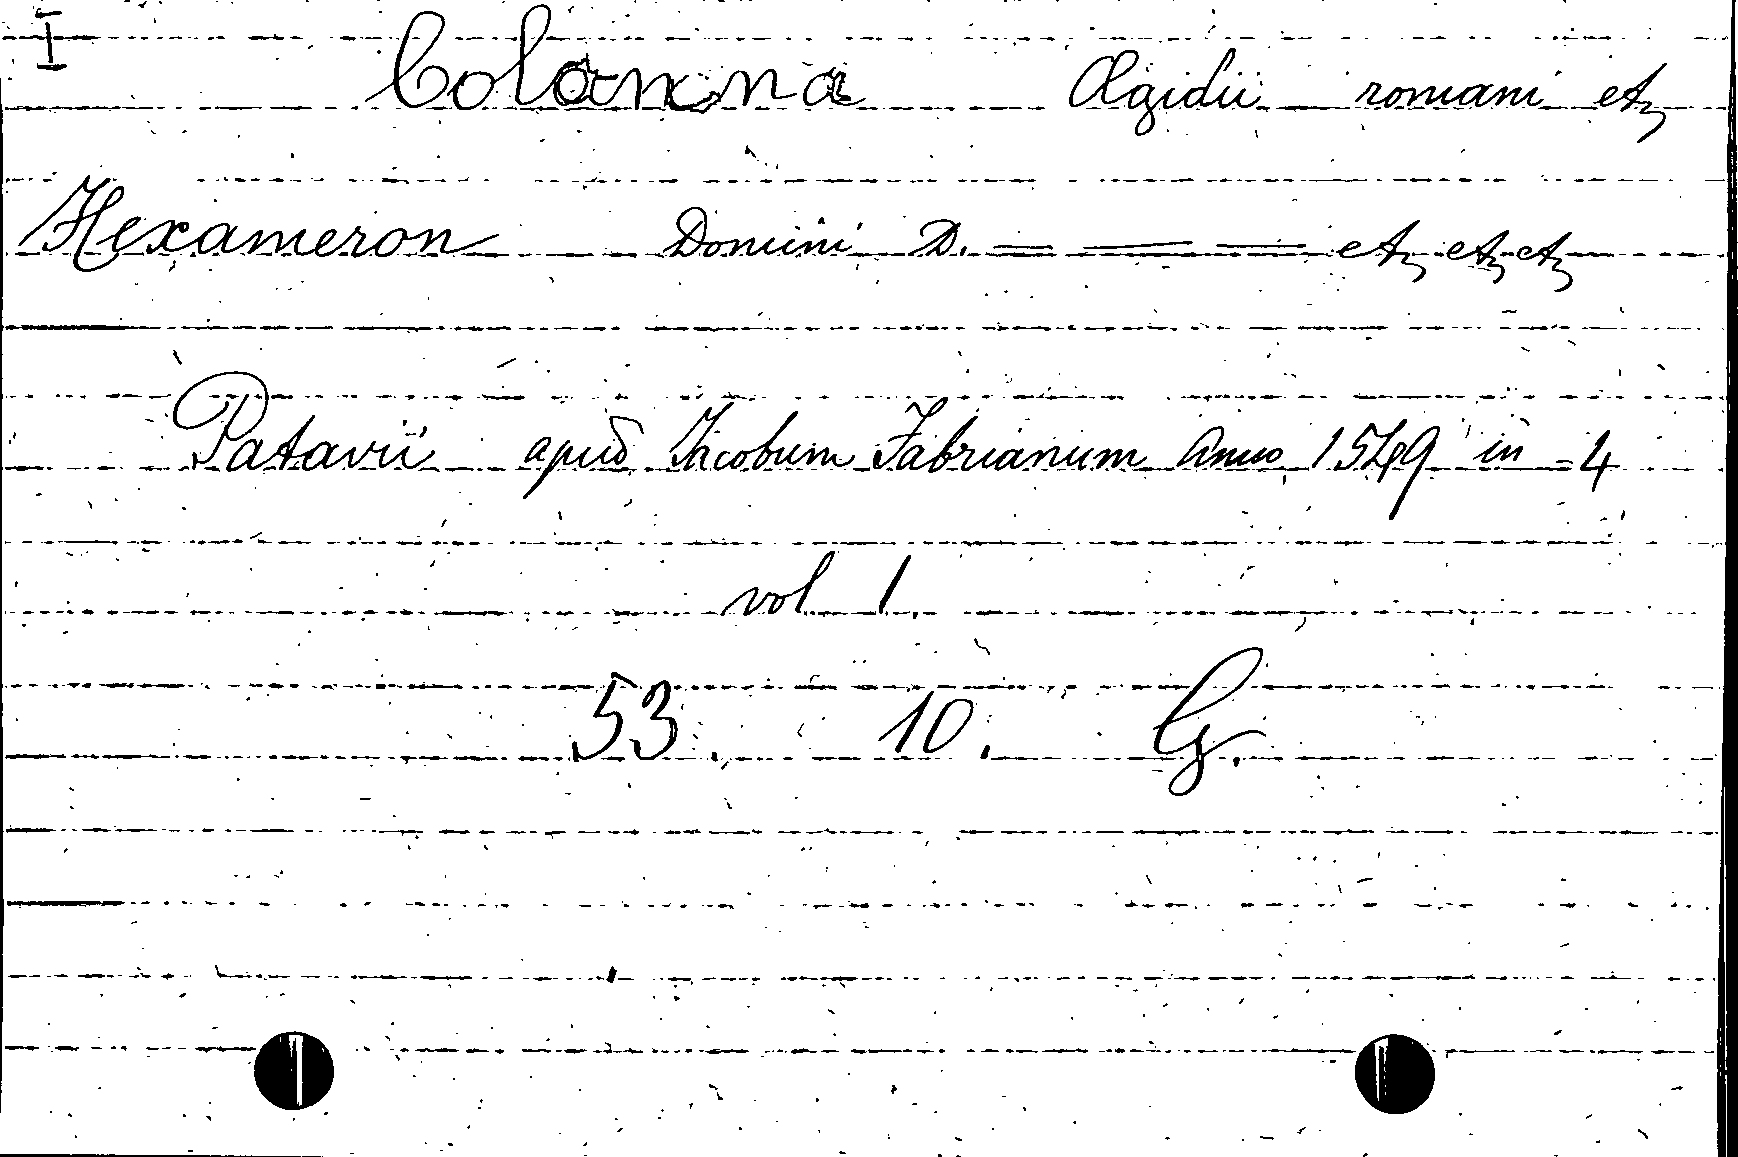 I Colonna Ægidii romani etc
Hexameron Domini D. = = = etc etc etc
Patavii apud Jacobum Fabrianum Anno 1549 in 4
vol 1.
53. 10. G.